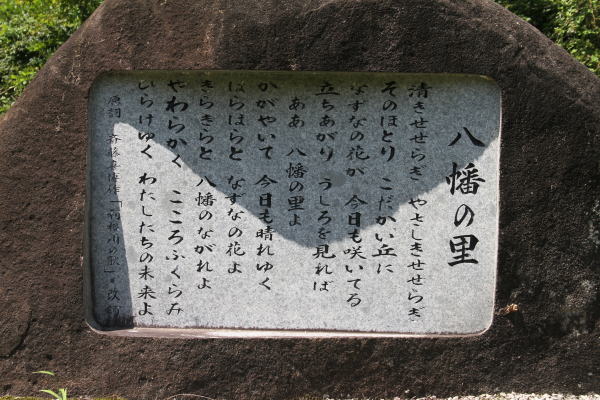 八幡の里
清きせせらぎ やさしきせせらぎ
そのほとり こだかい丘に
なずなの花が 今日も咲いてる
立ちあがり うしろを見れば
ああ 八幡の里よ
かがやいて 今日も晴れゆく
はらはらと なずなの花よ
きらきらと 八幡のながれよ
やわらかく こころふくらみ
ひらけゆく わたしたちの未来よ
原詞 斉藤